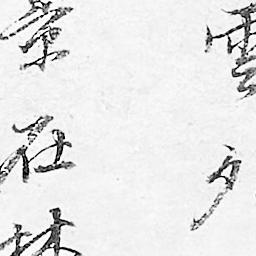 雲夕
景在林